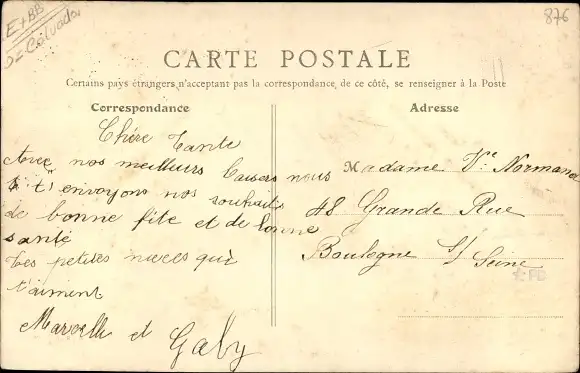 E+BB
= Calvados
876
CARTE POSTALE
Certains pays étrangers n'acceptant pas la correspondance de ce côté, se renseigner à la Poste
Correspondance
Chère Tante
Avec nos meilleurs baisers nous
t'envoyons nos souhaits
de bonne fête et de bonne
santé
Tes petites nieces qui
t'aiment
Marcelle et Gaby
Adresse
Madame Vve Normand
48 Grande Rue
Boulogne S/ Seine
PB